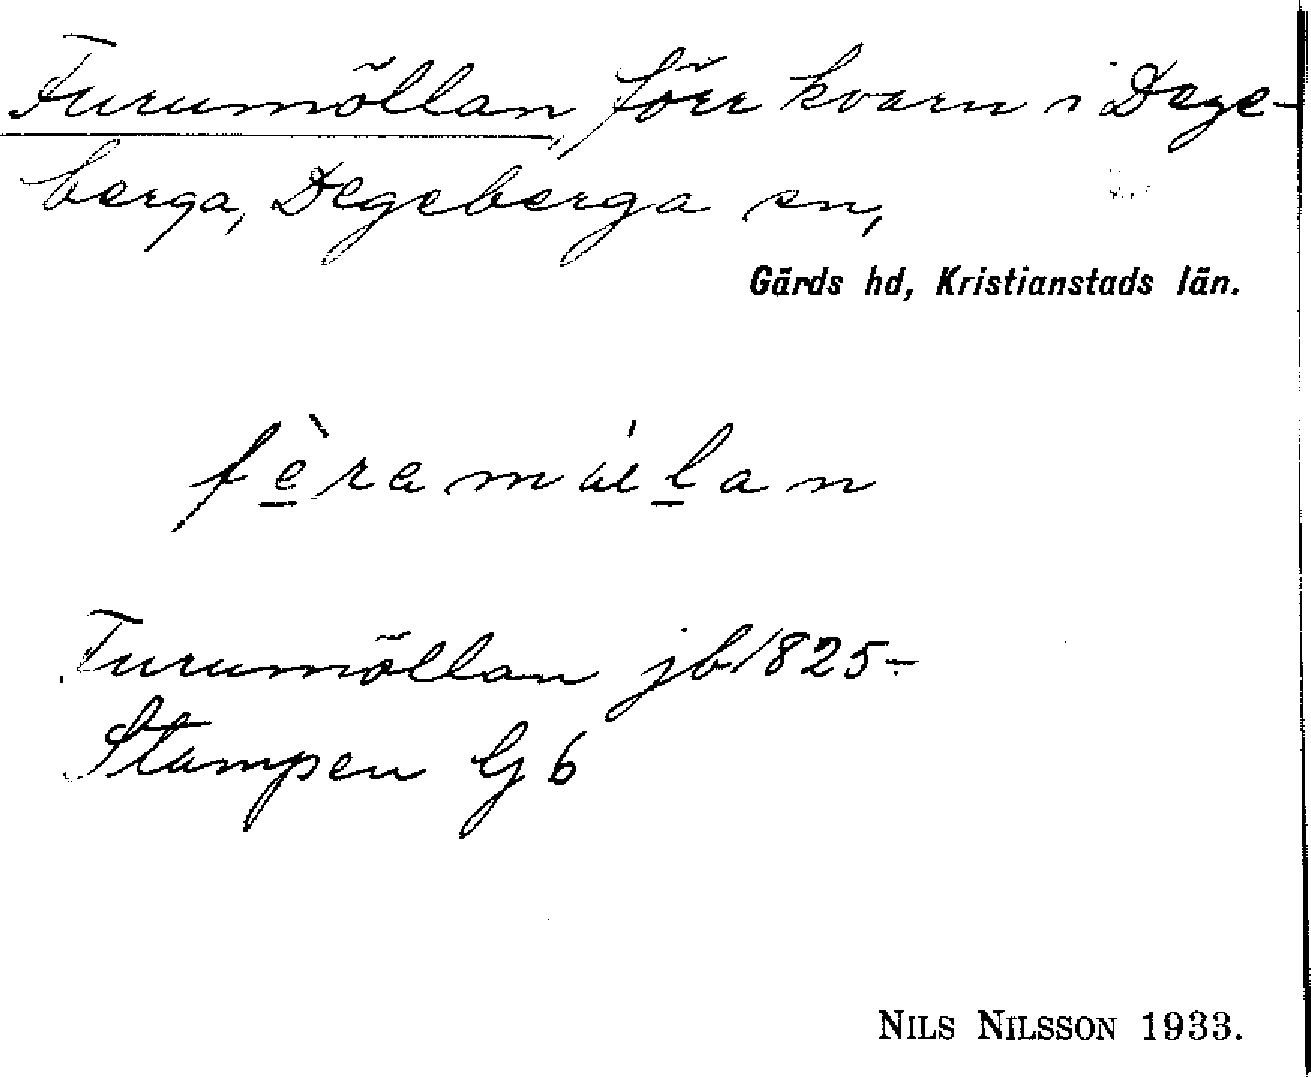 Furumöllan, förr kvarn i Dege-
berga, Degeberga sn,
Gärds hd, Kristianstads län.
Furumöllan jb 1825-
Stampen G 6
NILS NILSSON 1933.